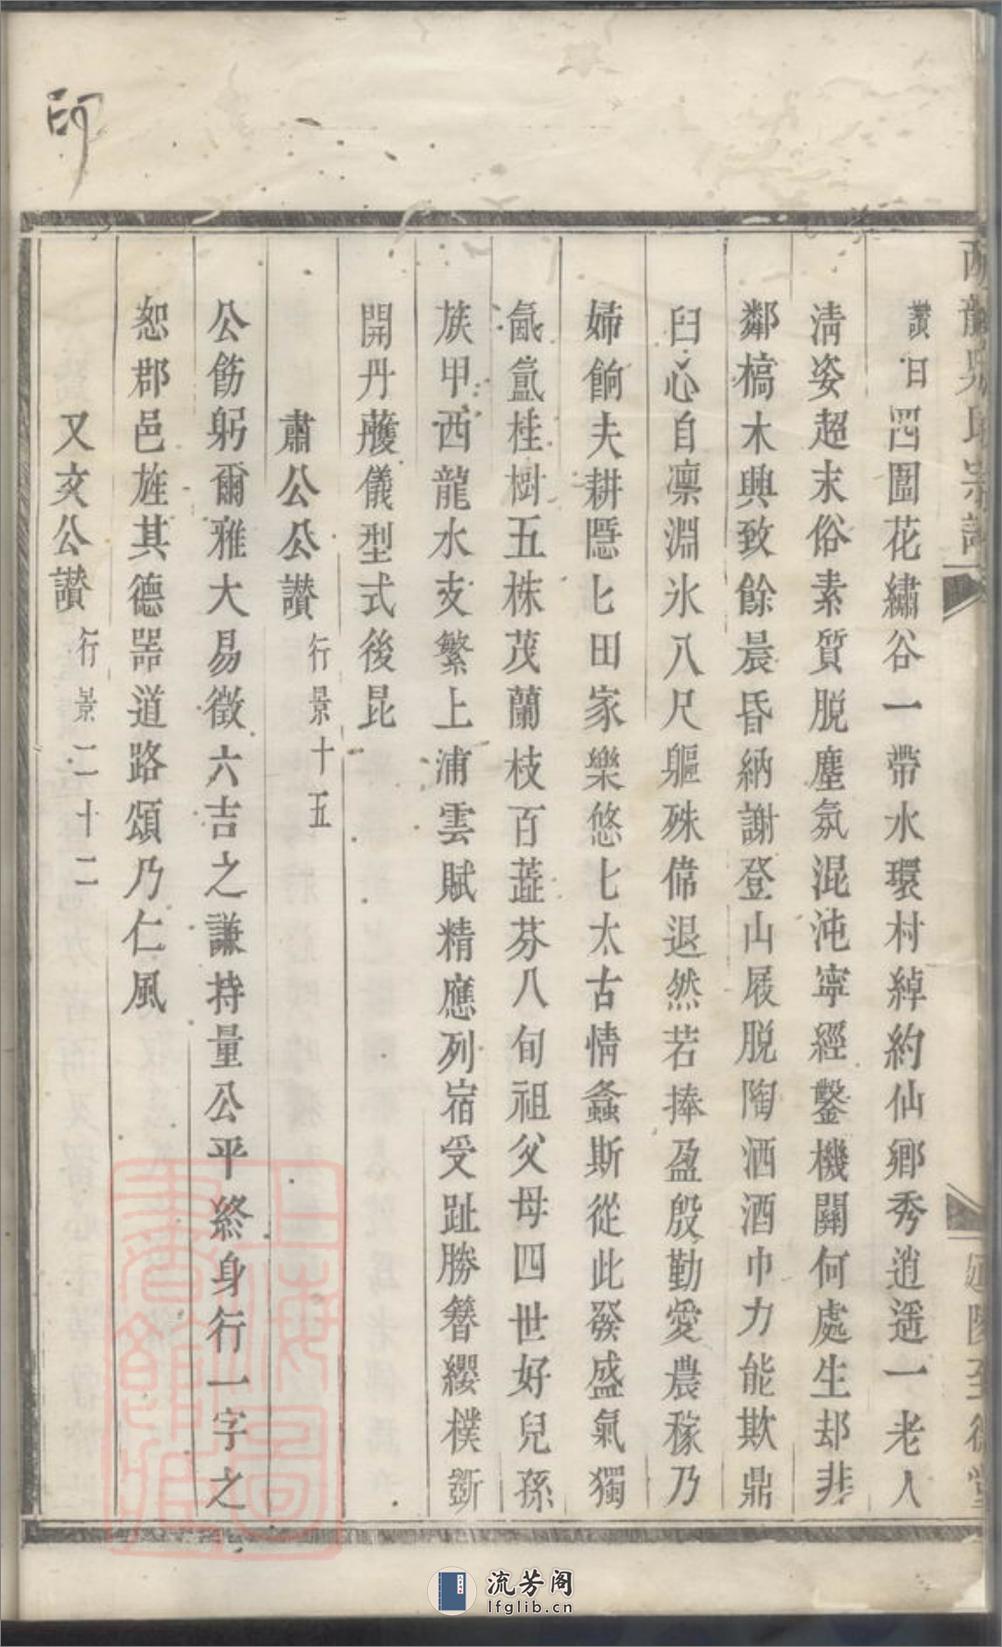 讚曰四圍花繡谷一帶水環村綽約仙鄉秀逍遥一老人
淸姿超末俗素質脫塵氛混沌寧經鑿機關何處生却非
鄰槁木興致餘晨昏納謝登山屐脫陶洒酒巾力能欺鼎
臼心自凛淵氷八尺軀殊偉退然若捧盈殷勤愛農稼乃
婦餉夫耕隱匕田家樂悠匕太古情螽斯從此發盛氣獨
氤氳桂樹五株茂蘭枝百葢芬八旬祖父母四世好兒孫
族甲西龍水支繁上浦雲賦精應列宿受趾勝簪纓樸斵
開丹雘儀型式後昆
肅公公讃行景十五
公飭躬爾雅大易徵六吉之謙持量公平終身行一字之
恕郡邑旌其德噐道路頌乃仁風
又文公讃行景二十二
印
上海圖書館藏
流芳阁
lfglib.cn